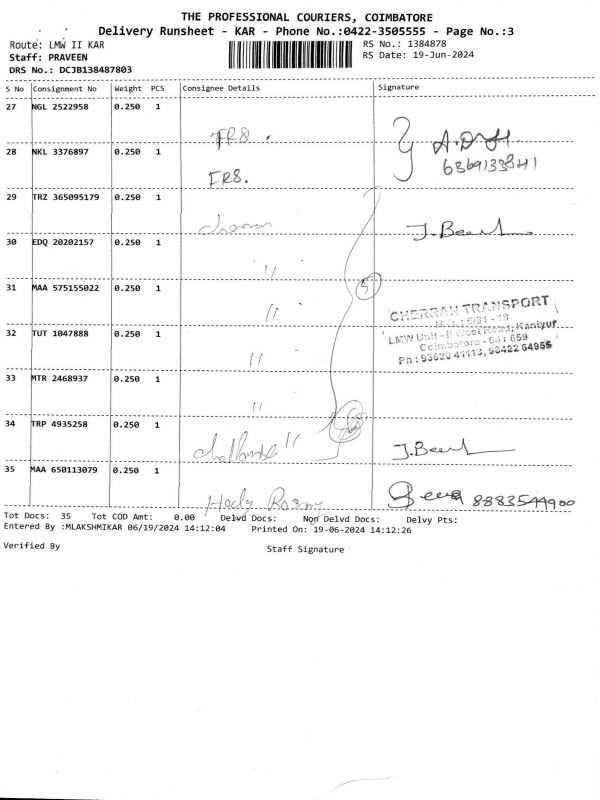 THE PROFESSIONAL COURIERS, COIMBATORE
Delivery Runsheet - KAR - Phone No.:0422-3505555 - Page No.:3
Route: LMW II KAR
RS No.: 1384878
Staff: PRAVEEN
RS Date: 19-Jun-2024
DRS No.: DCJB138487803
S No Consignment No Weight PCS Consignee Details Signature
27 NGL 2522958 0.250 1
FR8.
28 NKL 3376897 0.250 1
6369133841
FR8.
29 TRZ 365095179 0.250 1
J. Bee
30 EDQ 20202157 0.250 1
"
31 MAA 575155022 0.250 1
5
"
CHERRAN TRANSPORT
32 TUT 1047888 0.250 1
LMW Unit - II West Road, Kaniyur
Coimbatore - 641 659
Ph : 93620 41113, 98422 64955
"
33 MTR 2468937 0.250 1
"
34 TRP 4935258 0.250 1
"
J. Bee
35 MAA 650113079 0.250 1
8883544900
Tot Docs: 35 Tot COD Amt: 0.00 Delvd Docs: Non Delvd Docs: Delvy Pts:
Entered By :MLAKSHMIKAR 06/19/2024 14:12:04 Printed On: 19-06-2024 14:12:26
Verified By
Staff Signature